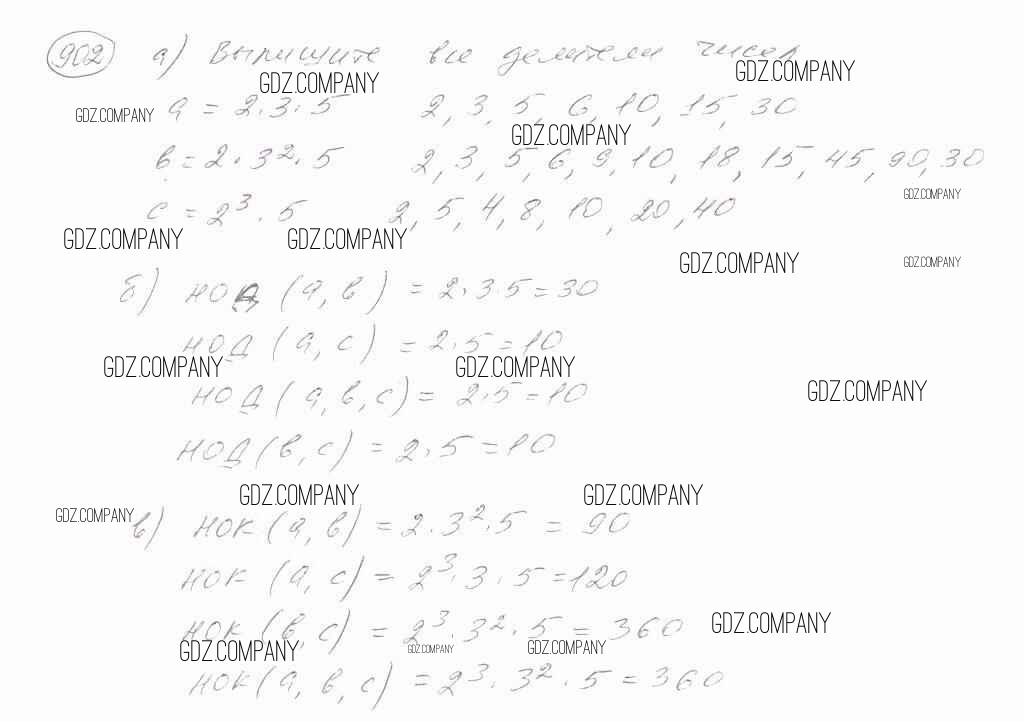 902 а) Выпишите все делители чисел
GDZ.COMPANY GDZ.COMPANY
GDZ.COMPANY a = 2·3·5 2, 3, 5, 6, 10, 15, 30
GDZ.COMPANY
в = 2·3²·5 2, 3, 5, 6, 9, 10, 18, 15, 45, 90, 30
GDZ.COMPANY
c = 2³·5 2, 5, 4, 8, 10, 20, 40
GDZ.COMPANY GDZ.COMPANY
GDZ.COMPANY GDZ.COMPANY
б) НОД (а, в) = 2·3·5 = 30
НОД (а, с) = 2·5 = 10
GDZ.COMPANY GDZ.COMPANY
НОД (а, в, с) = 2·5 = 10 GDZ.COMPANY
НОД (в, с) = 2·5 = 10
GDZ.COMPANY GDZ.COMPANY
GDZ.COMPANY в) НОК (а, в) = 2·3²·5 = 90
НОК (а, с) = 2³·3·5 = 120
НОК (в, с) = 2³·3²·5 = 360 GDZ.COMPANY
GDZ.COMPANY GDZ.COMPANY GDZ.COMPANY
НОК (а, в, с) = 2³·3²·5 = 360